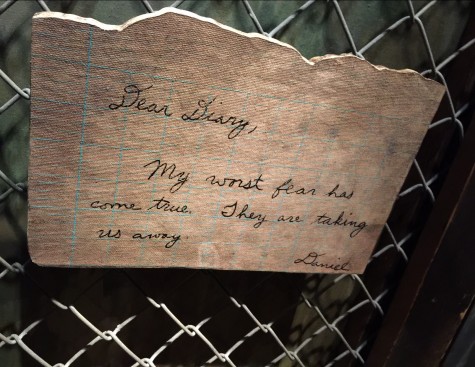 Dear Diary,
My worst fear has
come true. They are taking
us away.
Daniel